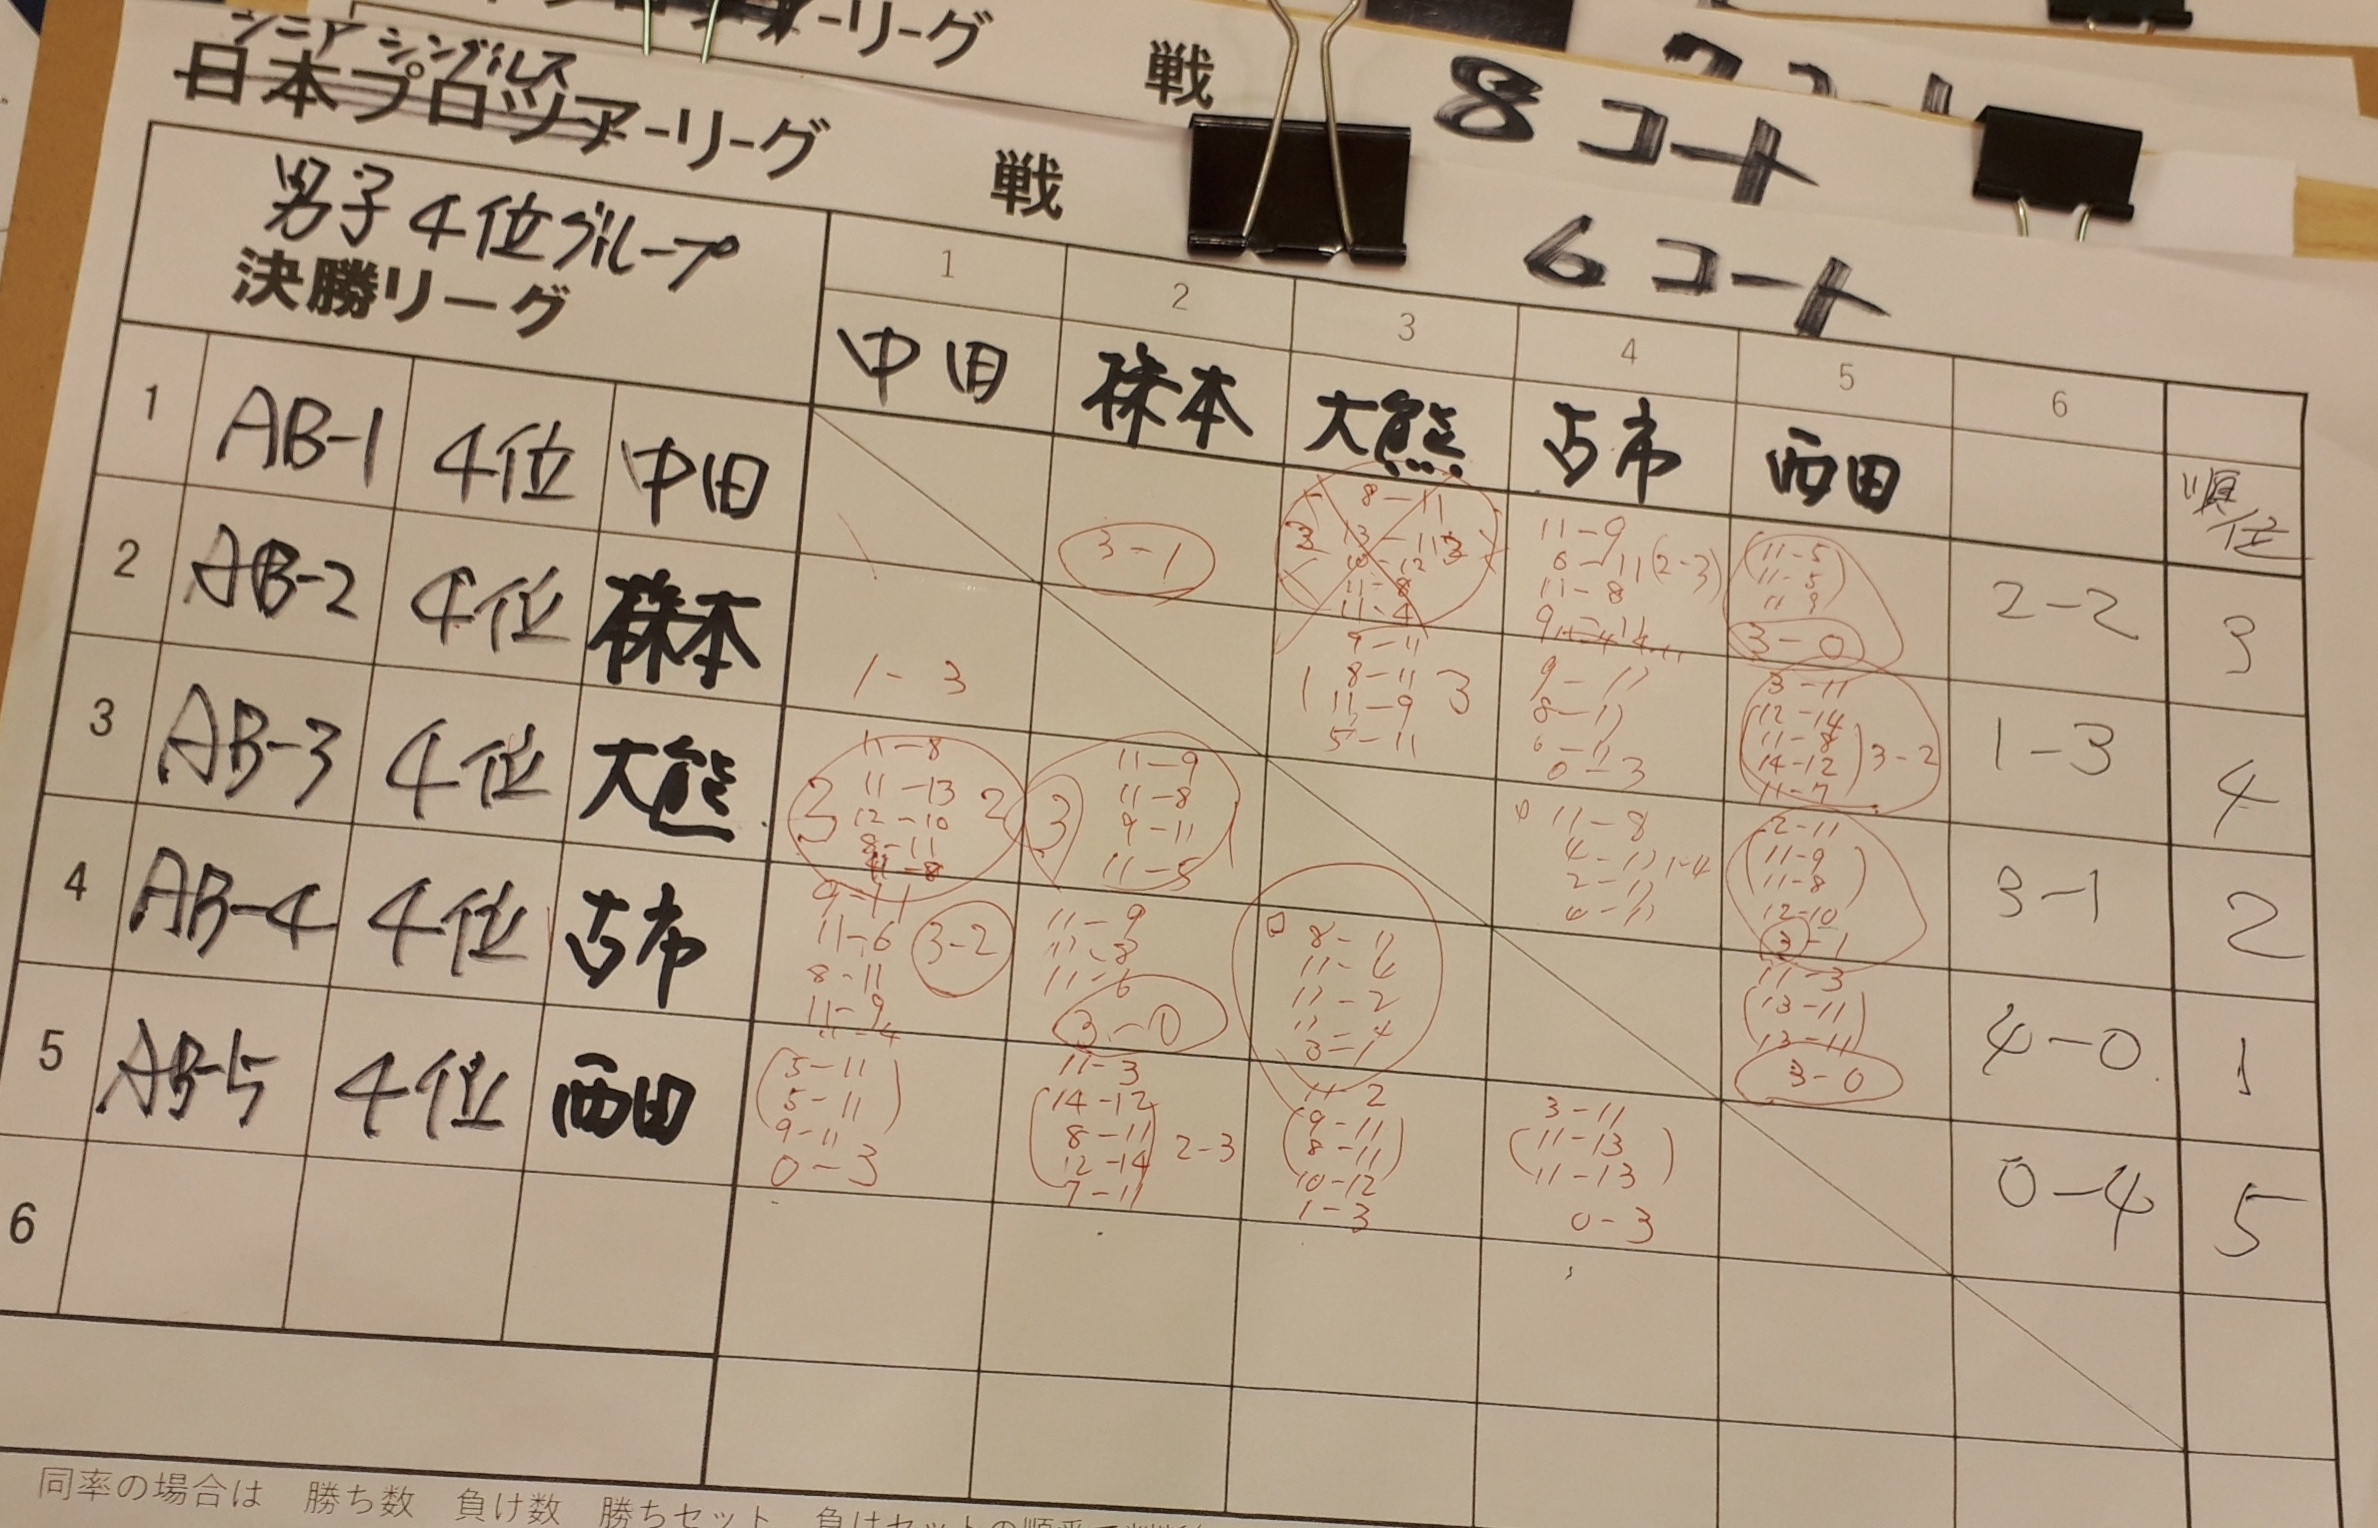 ーリーグ 戦
8コート
シニア シングルス
日本プロツアーリーグ 戦
6コート
男子4位グループ
決勝リーグ
1 2 3 4 5 6
中田 株本 大熊 古市 西田
順位
1 AB-1 4位 中田
3-1
8-11
11-9
6-11 (2-3)
11-8
11-5
11-5
11-9
3-0
2-2
3
2 AB-2 4位 株本
1-3
9-11
8-11
11-9
5-11
1 3
9-11
8-11
6-11
0-3
3-11
12-14
11-8
14-12
11-7
3-2
1-3
4
3 AB-3 4位 大熊
11-8
11-13
12-10
8-11
11-8
3 2
11-9
11-8
9-11
11-5
3
11-8
4-11
2-11
4-11
2-11
11-9
11-8
12-10
3-1
3-1
2
4 AB-4 4位 古市
9-11
11-6
8-11
11-9
3-2
11-9
11-8
11-6
3-0
8-11
11-4
11-2
11-4
3-1
11-3
13-11
13-11
3-0
4-0
1
5 AB-5 4位 西田
5-11
5-11
9-11
0-3
11-3
14-12
8-11
12-14
7-11
2-3
11-2
9-11
8-11
10-12
1-3
3-11
11-13
11-13
0-3
0-4
5
6
同率の場合は 勝ち数 負け数 勝ちセット 負けセットの順番で